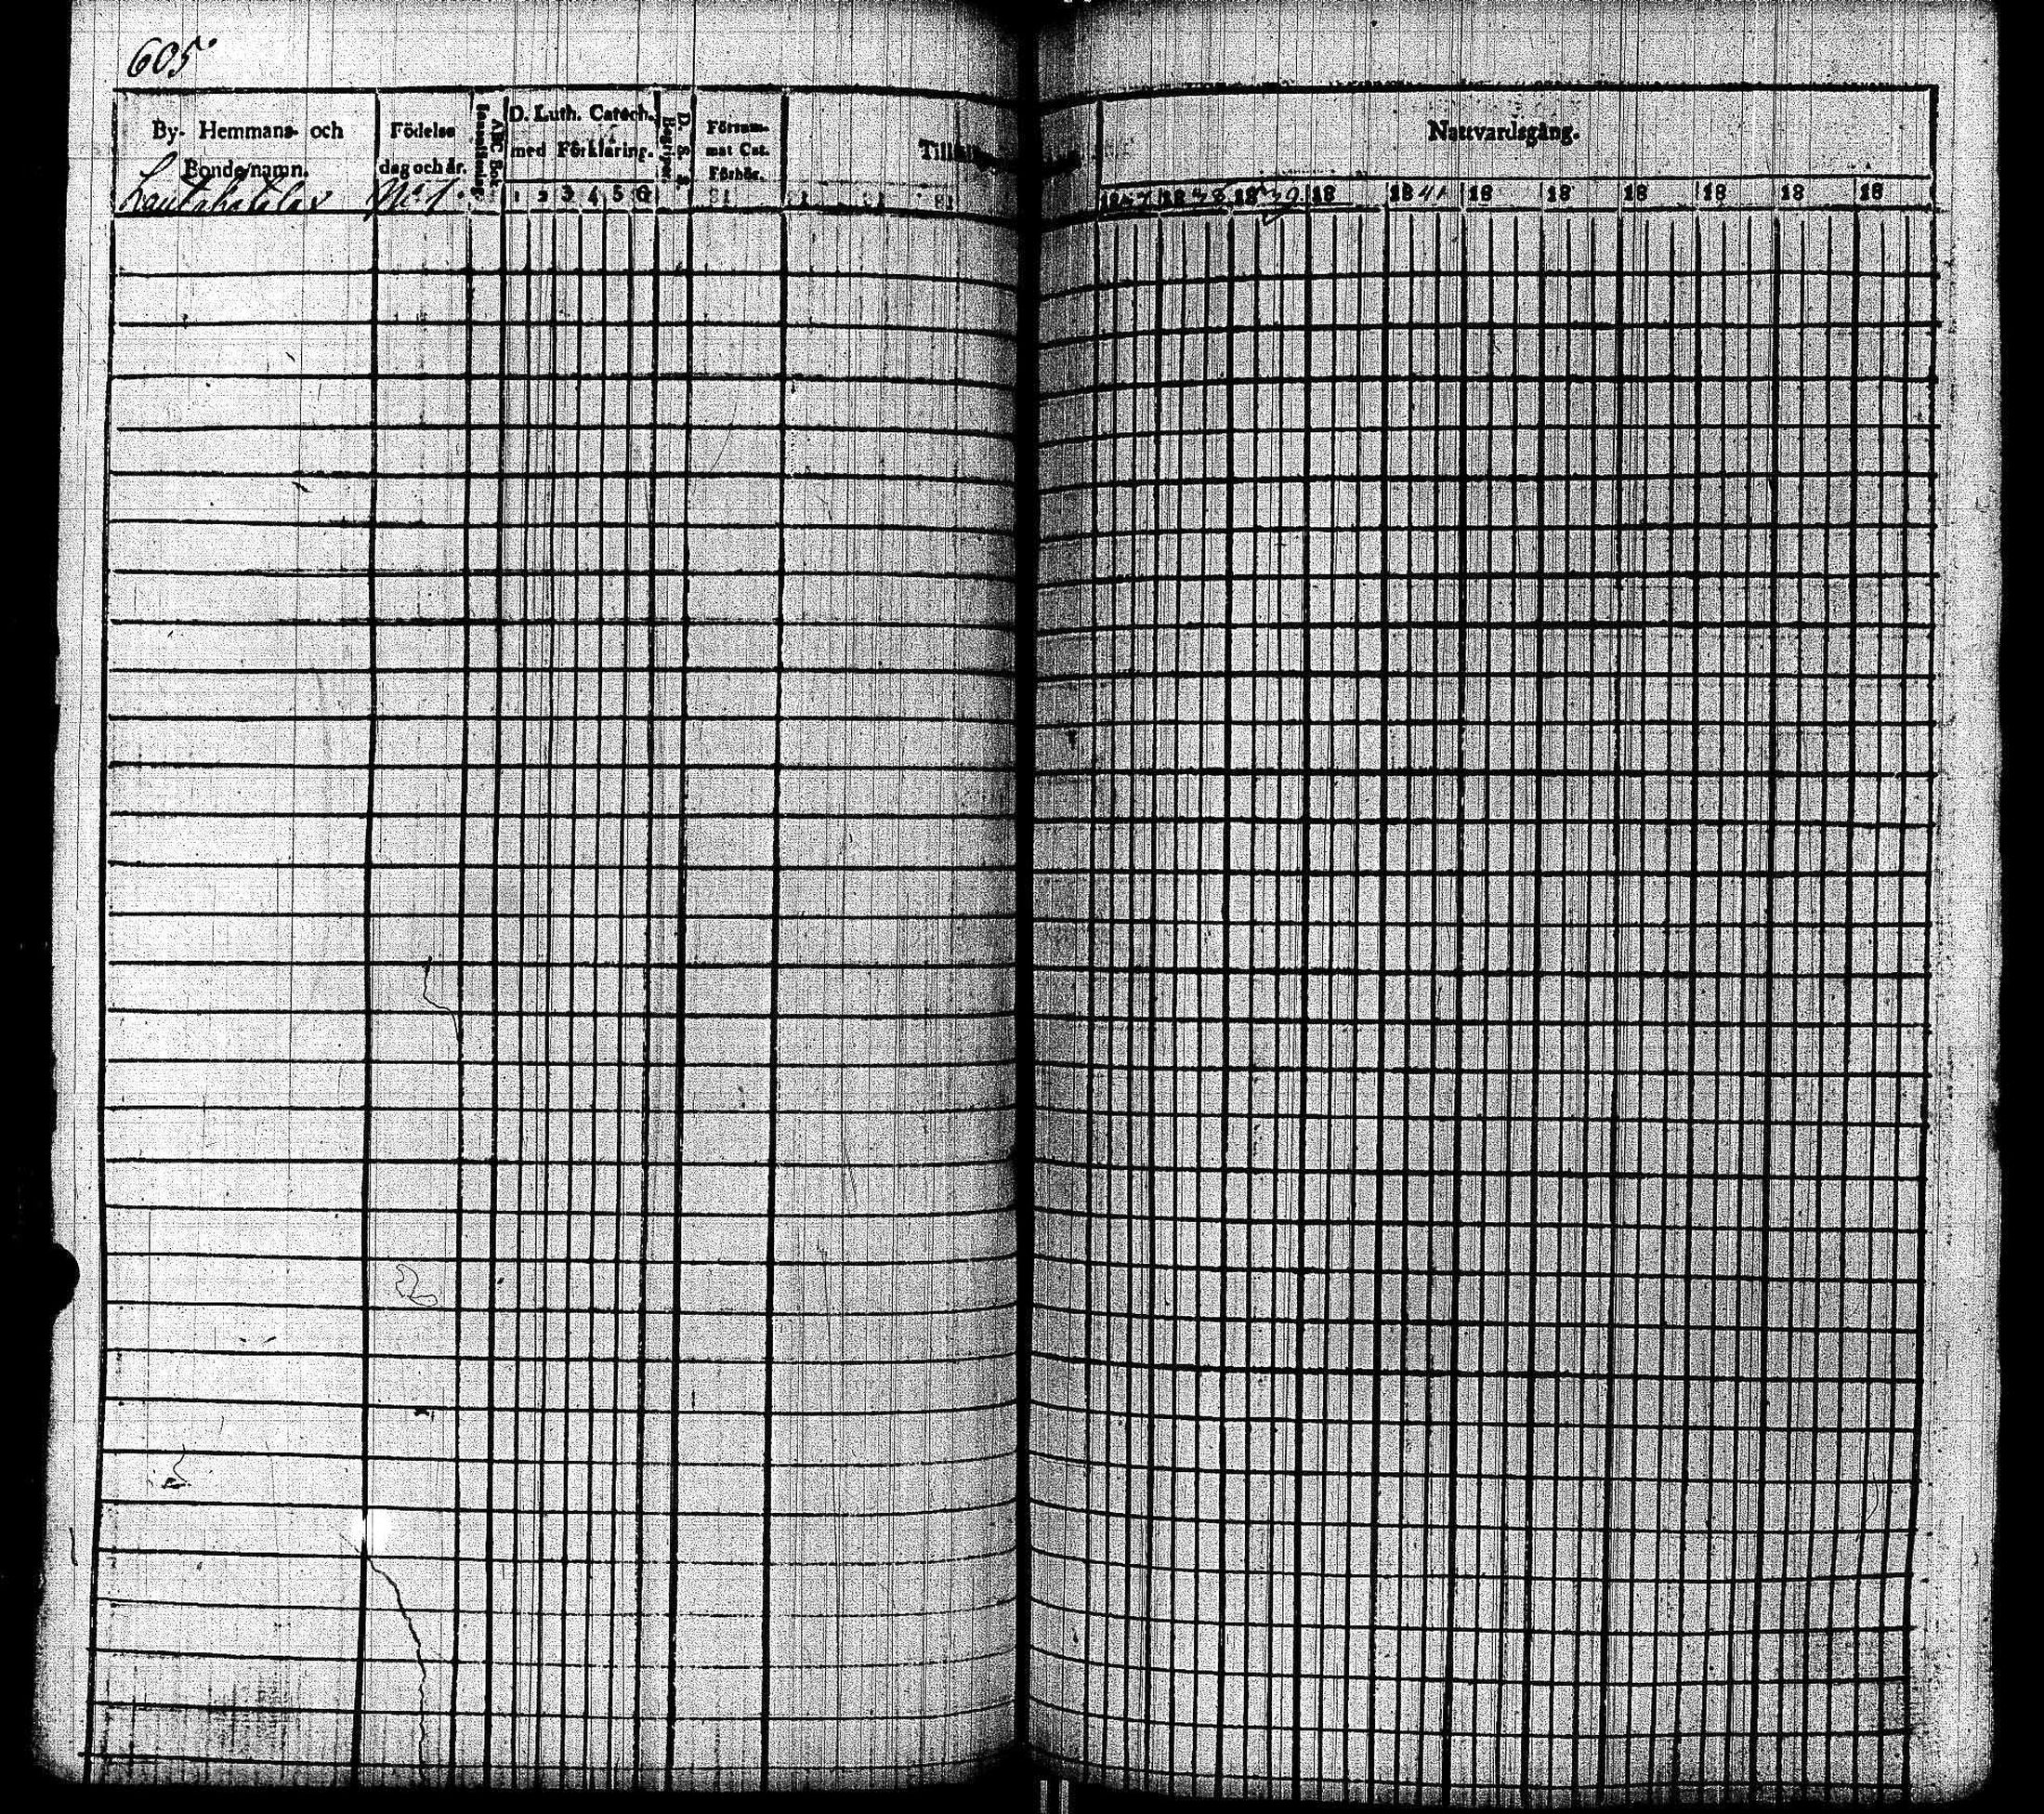 605
By- Hemmans- och
Bondenamn.
Födelse
dag och år.
No 1.
ABC Bok
D. Luth. Catech.
med Förklaring.
1 2 3 4 5 6
D. S. S.
Begriper
Försum-
mat Cat.
Förhör.
Nattvardsgång.
1837 1838 1839 18 1841 18 18 18 18 18 18